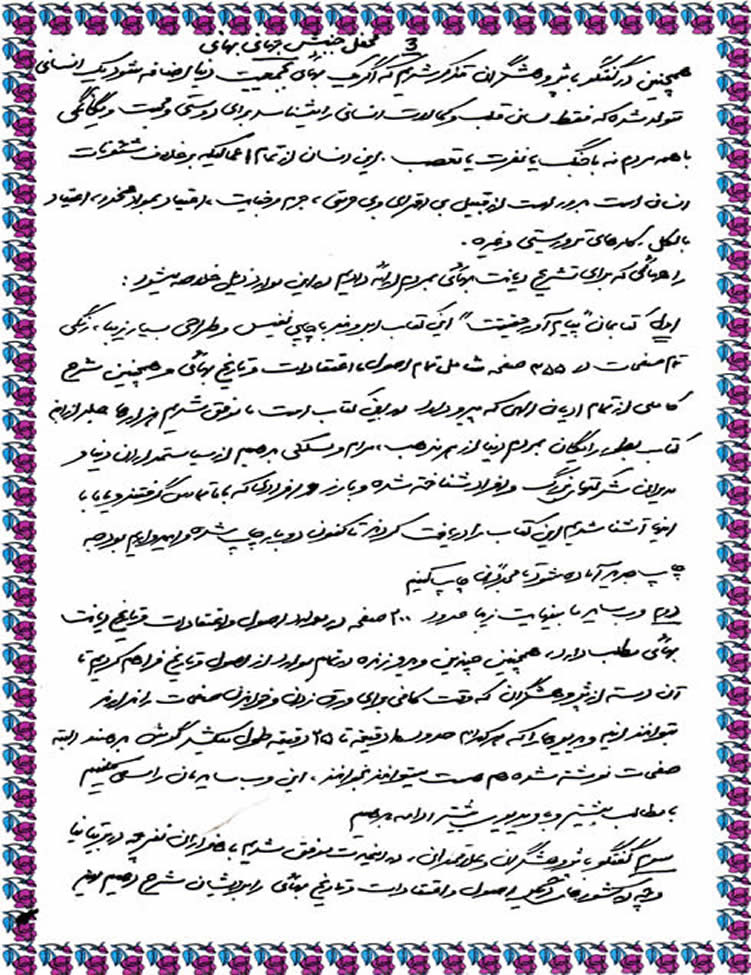 3 محفل جنبش جهانی بهائی
همچنین در گفتگو با پژوهشگران متذکر شدیم که اگر یک بهائی بجمعیت دنیا اضافه شود یک انسانی
متولد شده که فقط لسان قلب و کمالات انسانی را میشناسد برای دوستی و محبت و یگانگی
با همه مردم نه با جنگ یا نفرت یا تعصب. این انسان از تمام اعمالیکه بر خلاف شئونات
انسانی است بدور است از قبیل بی احترامی و بی حرمتی، جرم و جنایت، اعتیاد بمواد مخدر، اعتیاد
بالکل. کارهای تروریستی و غیره.
راههائی که برای تشریح دیانت بهائی بمردم ارائه دادیم در این موارد ذیل خلاصه میشود:
اول کتابمان "پیام آور حقیقت" این کتاب با چاپ نفیس و طراحی بسیار زیبا، رنگی
تمام صفحات در ۳۵۵ صفحه شامل تمام اصول، اعتقادات و تاریخ بهائی و همچنین شرح
کاملی از تمام ادیان الهی که پیرو دارد در این کتاب است. موفق شدیم هزارها جلد از این
کتاب بطور رایگان بمردم دنیا از هر مذهب، مرام و مسلکی بدهیم از سیاستمداران دنیا و
مدیران شرکتهای بزرگ و افراد شناخته شده و بارز و افرادی که با ما تماس گرفتند و یا ما با
آنها آشنا شدیم این کتاب را دریافت کردند تا کنون دو بار چاپ شده و امیدواریم بودجه
چاپ جدید آماده شود تا مجدداً چاپ کنیم
دوم وب سایر ما بینهایت زیبا حدود ۲۰۰ صفحه در موارد اصول و اعتقادات و تاریخ دیانت
بهائی مطلب دارد، همچنین چندین ویدیو زنده در تمام موارد از اصول و تاریخ فراهم کردیم تا
آن دسته از پژوهشگران که وقت کافی برای ورق زدن و خواندن صفحات را ندارند
بتوانند این ویدیوها را که هر کدام حدود دقیقه تا ۲۵ دقیقه طول میکشد گوش بدهند البته
صفحات نوشته شده هم هست میتوانند بخوانند، این وب سایرمان را سعی میکنیم
با مطالب بیشتر و ویدیوی بیشتر ادامه بدهیم
سوم گفتگو با پژوهشگران و علاقمندان، در اینصورت موفق شدیم با هزاران نفر چه در بریتانیا
و چه در کشورهای دیگر اصول و اعتقادات و تاریخ بهائی را برایشان شرح دهیم